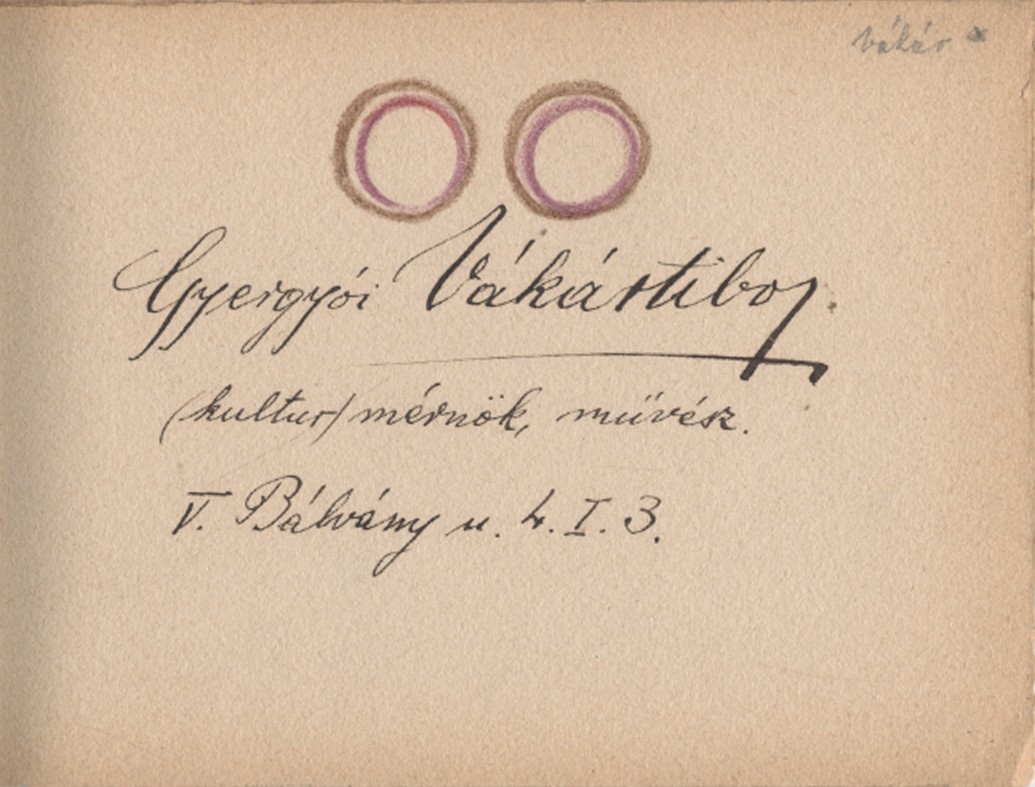 vákár
Gyergyói Vákártibor
(kultur) mérnök, müvész.
V. Bálvány u. 4. I. 3.